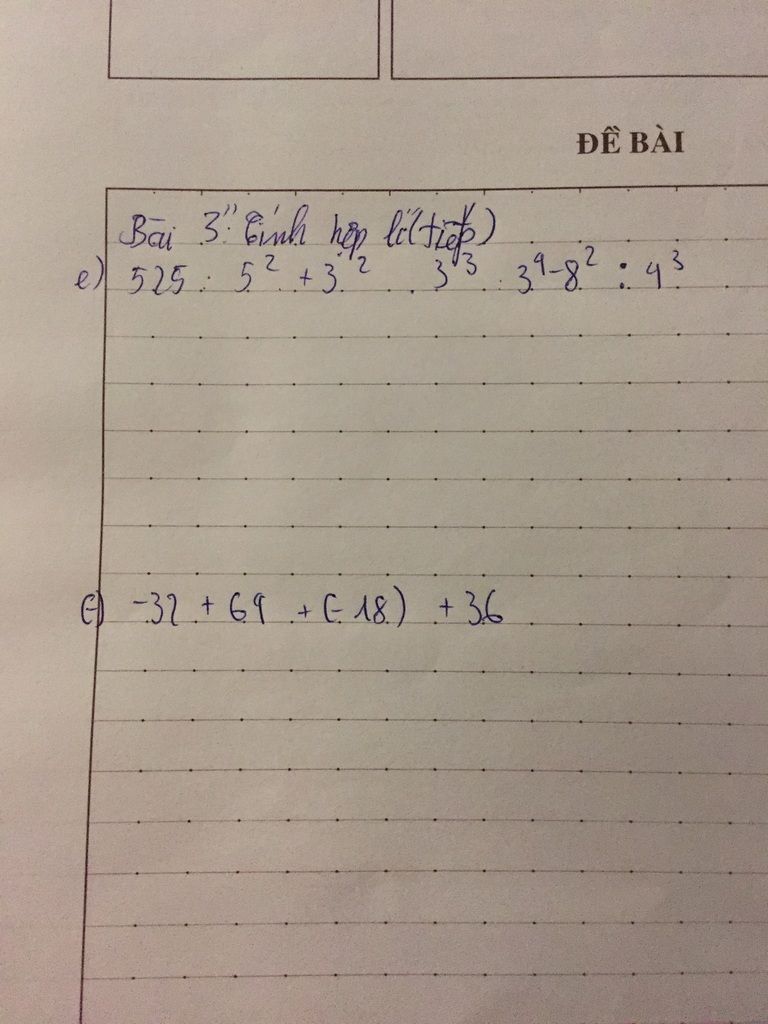 ĐỀ BÀI
Bài 3: Tính hợp lí (tiếp)
e) 525 : 5² + 3² . 3³ : 3⁴ - 8² : 4³
f) -32 + 64 + (-18) + 36